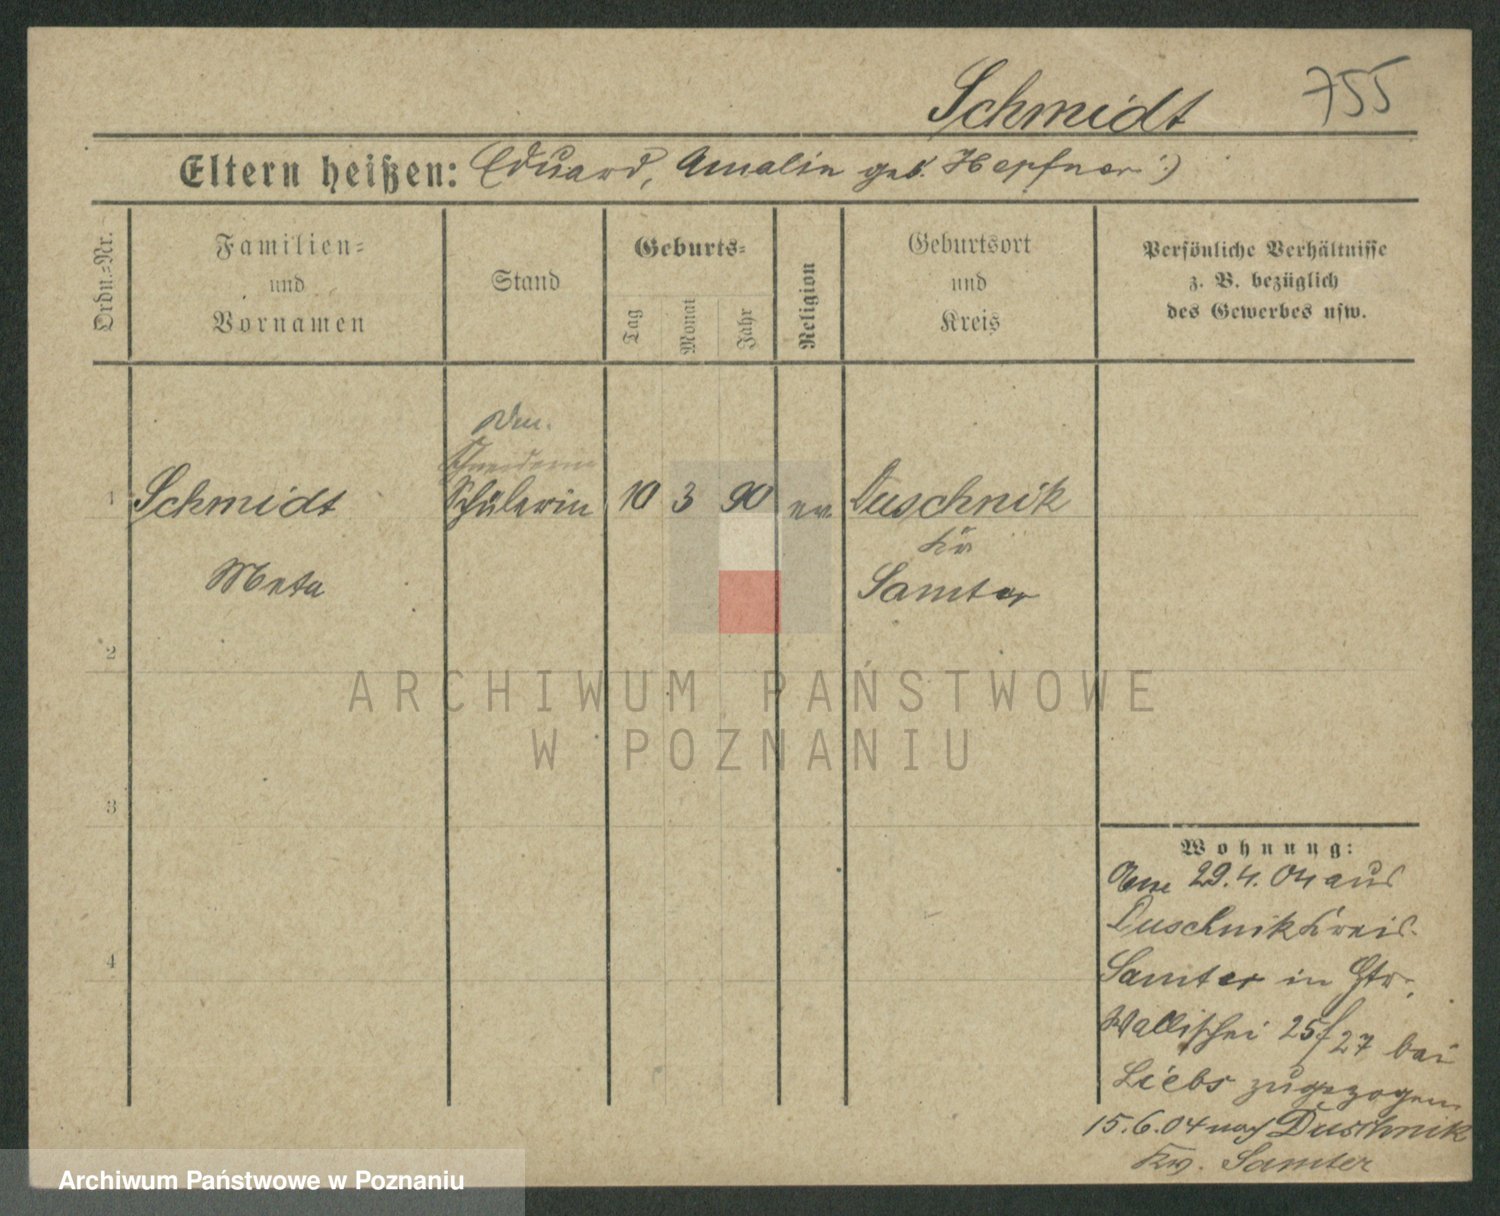 Schmidt 755
Eltern heißen: Eduard, Amalie geb. Hepfner :)
Ordn.=Nr.
Familien=
und
Vornamen
Stand
Geburts=
Tag
Monat
Jahr
Religion
Geburtsort
und
Kreis
Persönliche Verhältnisse
z. B. bezüglich
des Gewerbes usw.
1 Schmidt Schülerin 10 3 90 ev. Duschnik
Kr
Meta Samter
2
3
4
ARCHIWUM PAŃSTWOWE
W POZNANIU
Wohnung:
29.4.04 aus
Duschnik Kreis
Samter in
Wallischei 25/27 bei
Liebs zugezogen
15.6.04 nach Duschnik
Kr. Samter
Archiwum Państwowe w Poznaniu